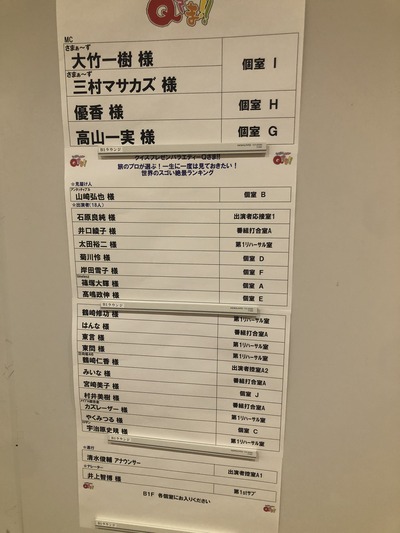 Qさま!!
MC
さまぁ～ず
大竹一樹 様
個室 I
さまぁ～ず
三村マサカズ 様
優香 様
個室 H
高山一実 様
個室 G
B1ラウンジ
クイズプレゼンバラエティーQさま!!
旅のプロが選ぶ!一生に一度は見ておきたい!
世界のスゴい絶景ランキング
Qさま!!
☆見届け人
アンタッチャブル
山崎弘也 様
個室 B
☆出演者(18人)
石原良純 様
出演者応接室1
井口綾子 様
番組打合室A
太田裕二 様
第1リハーサル室
菊川怜 様
個室 D
岸田雪子 様
個室 F
篠塚大輝 様
個室 A
高嶋政伸 様
個室 E
B1ラウンジ
鶴崎修功 様
第1リハーサル室
はんな 様
番組打合室A
東言 様
第1リハーサル室
東問 様
第1リハーサル室
鶴崎仁香 様
出演者控室A2
みいな 様
番組打合室A
宮崎美子 様
個室 J
村井美樹 様
番組打合室A
メイプル超合金
カズレーザー 様
第1リハーサル室
やくみつる 様
個室 C
宇治原史規 様
第1リハーサル室
B1ラウンジ
☆進行
清水俊輔 アナウンサー
出演者控室A1
☆ナレーター
井上智博 様
第1stサブ
B1F 各個室にお入りください
Qさま!!
B1ラウンジ